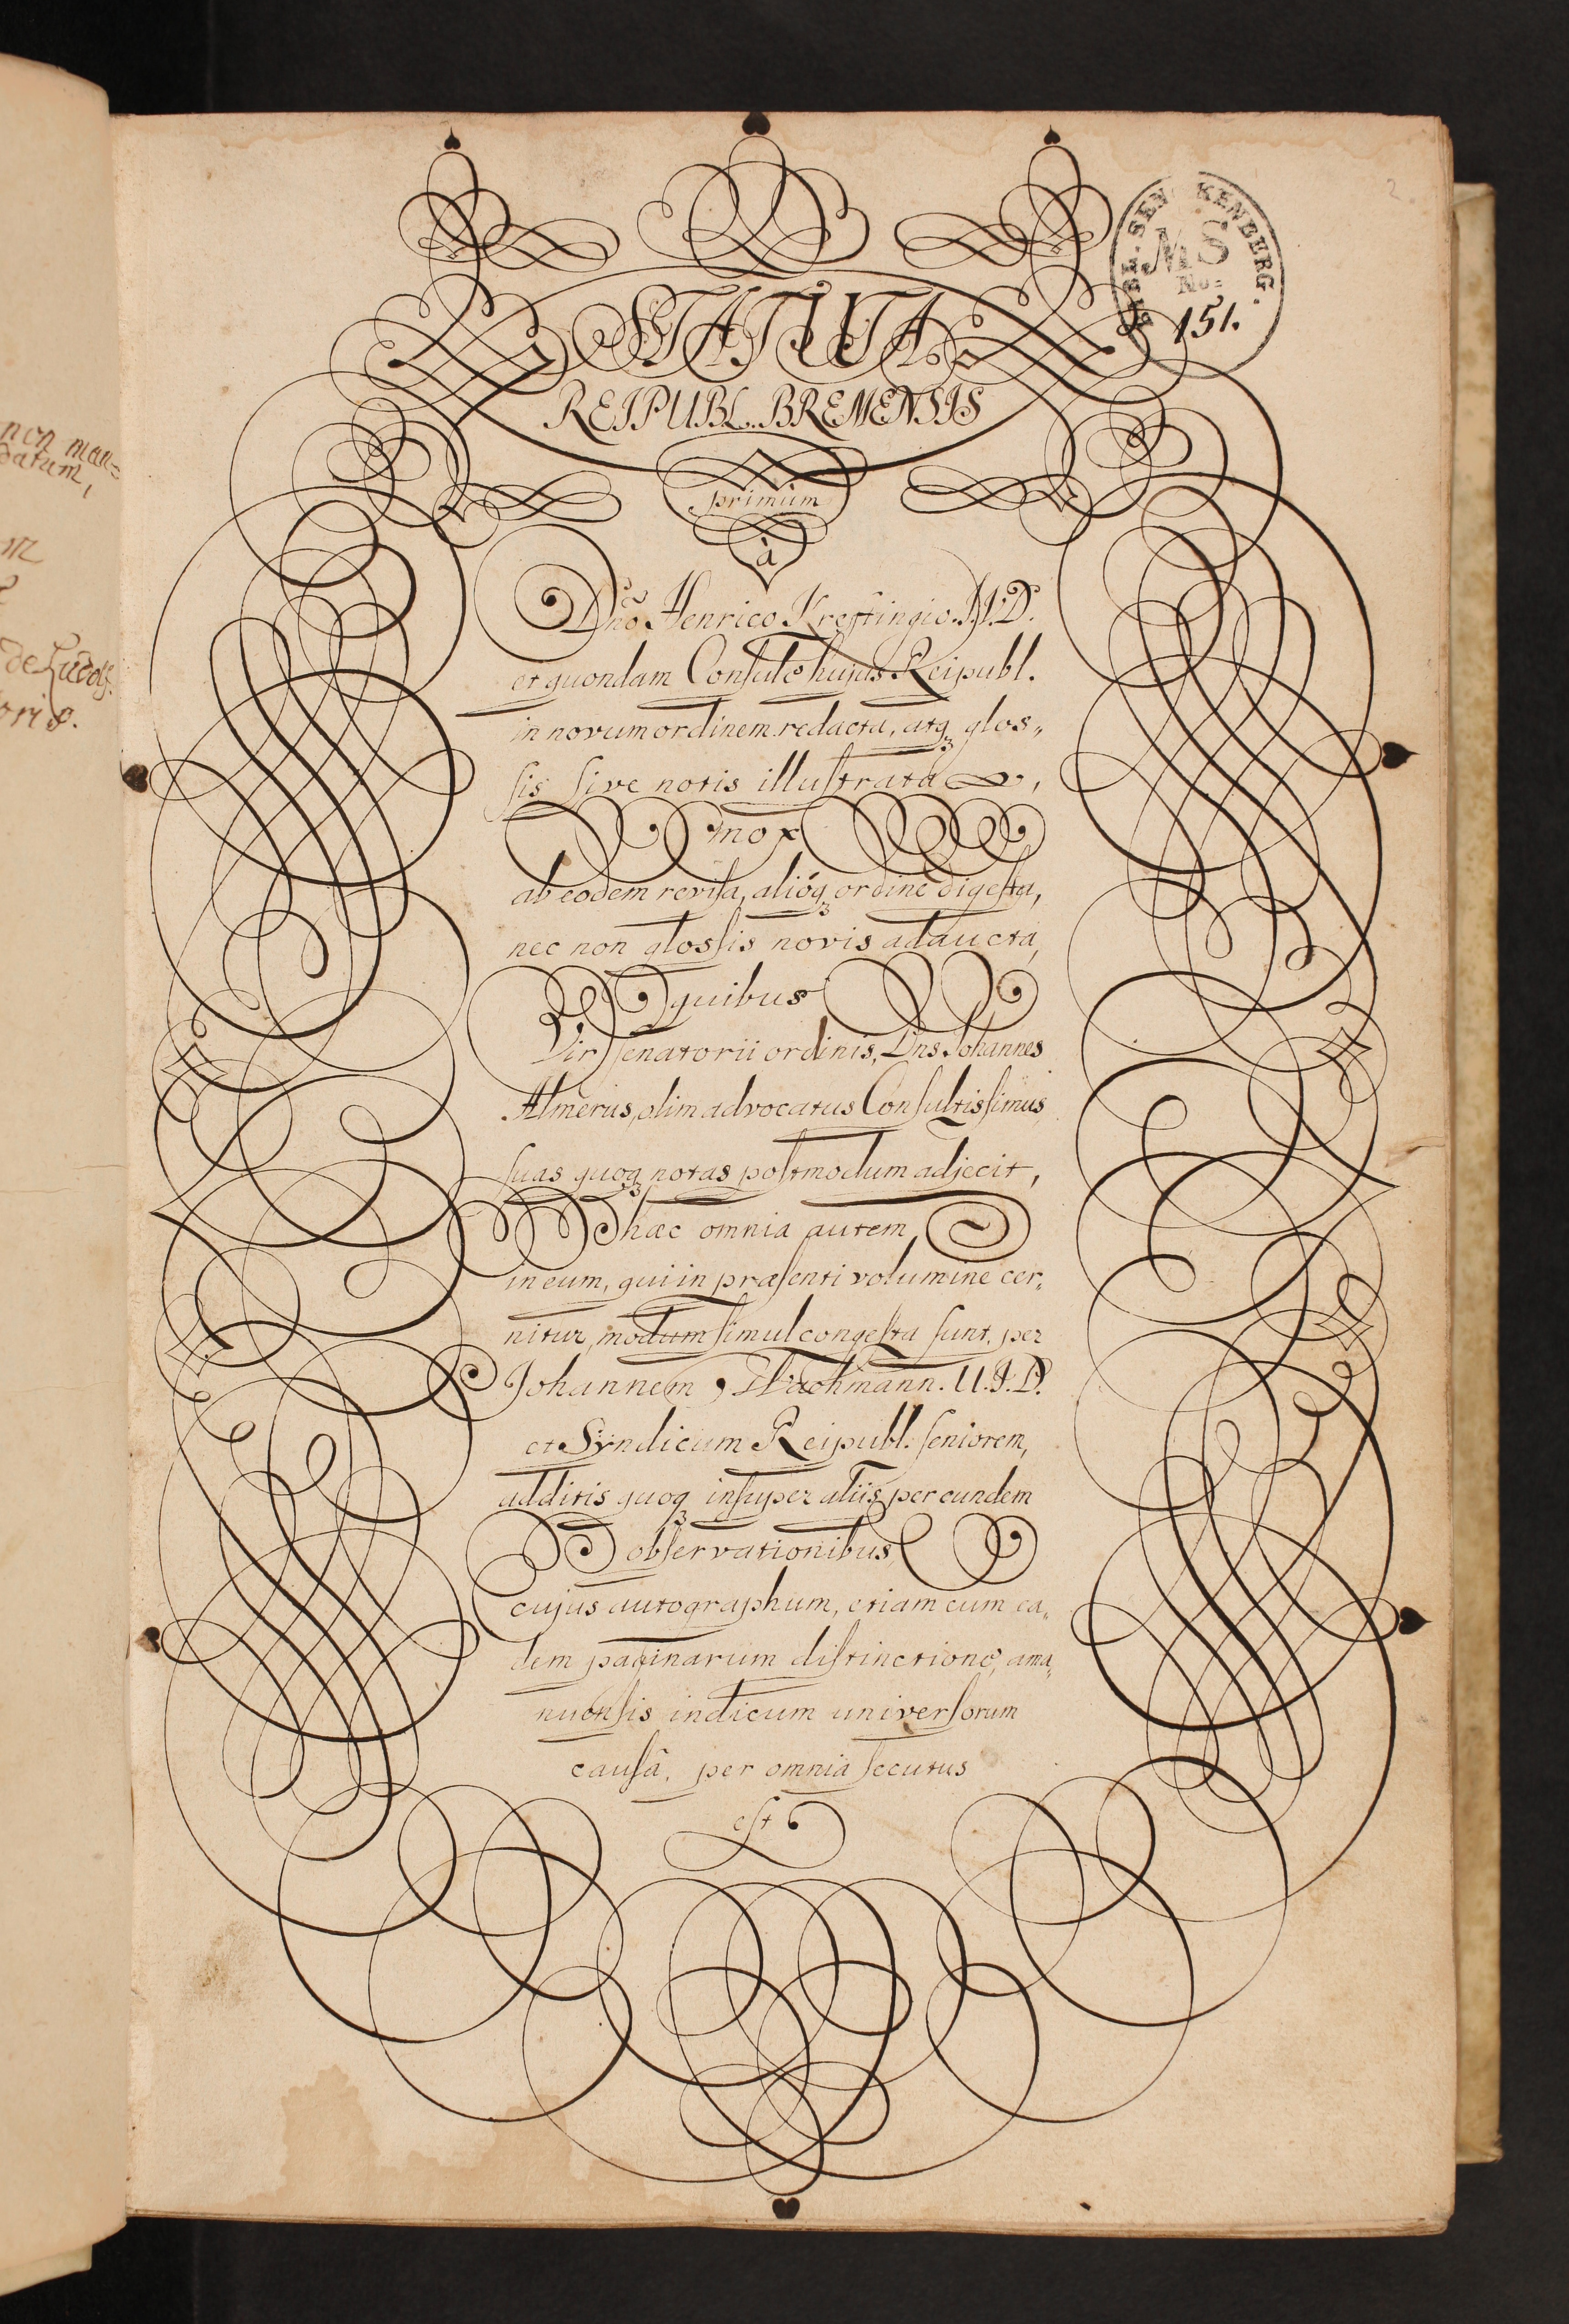 non man=
datum,
m
de Ludolf.
oris.
2
BIBL. SENCKENBERG.
MS
No:
151.
STATUTA
REIPUBL. BREMENSIS
primùm
à
Dn̄o Henrico Kreftingio. J.U.D.
et quondam Consule hujus Reipubl.
in novum ordinem redacta, atq₃ glos„
sis sive notis illustrata,
mox
ab eodem revisa, alióq₃ ordine digesta,
nec non glossis novis adaucta,
quibus
Vir senatorii ordinis, Dns. Johannes
Almerus, olim advocatus Consultissimus,
suas quoq₃ notas postmodum adjecit,
hæc omnia autem
in eum, qui in præsenti volumine cer„
nitur, modum simul congesta sunt, per
Johannem Wachmann. U.J.D.
et Syndicum Reipubl. seniorem,
additis quoq₃ insuper aliis per eundem
observationibus,
cujus autographum, etiam cum ea„
dem paginarum distinctione, ama„
nuensis indicum universorum
causâ, per omnia secutus
est